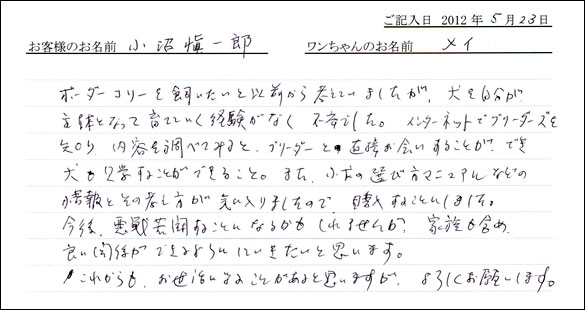 ご記入日 2012年5月23日
お客様のお名前 小沼慎一郎 ワンちゃんのお名前 メイ
ボーダーコリーを飼いたいと以前から考えていましたが、犬を自分が
主体となって育てていく経験がなく不安でした。インターネットでブリーダーズを
知り、内容を調べてみると、ブリーダーと直接お会いすることができ
犬も見学することができること。また、小犬の選び方マニュアルなどの
情報とその考え方が気に入りましたので、購入することにしました。
今後、悪戦苦闘することになるかもしれませんが、家族も含め、
良い関係ができるようにしていきたいと思います。
これからも、お世話になることがあると思いますが、よろしくお願いします。